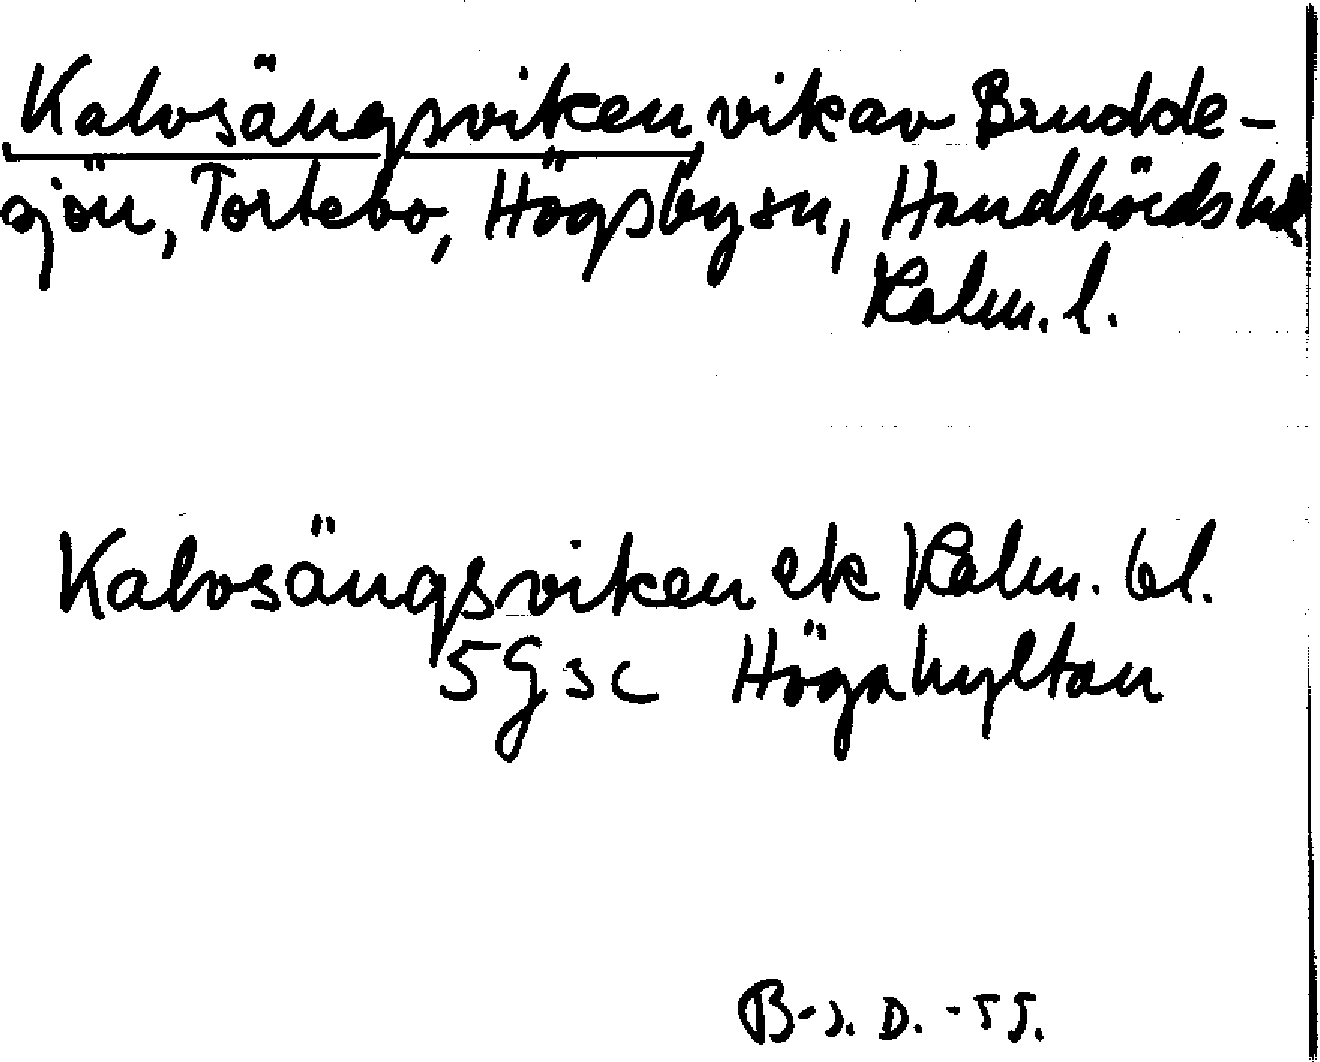 Kalvsängsviken, vik av Brudde-
sjön, Tortebo, Högsby sn, Handbörds hd
Kalm. l.
Kalvsängsviken ek Kalm. bl.
5G3c Högahyltan
B-s. D. -55.